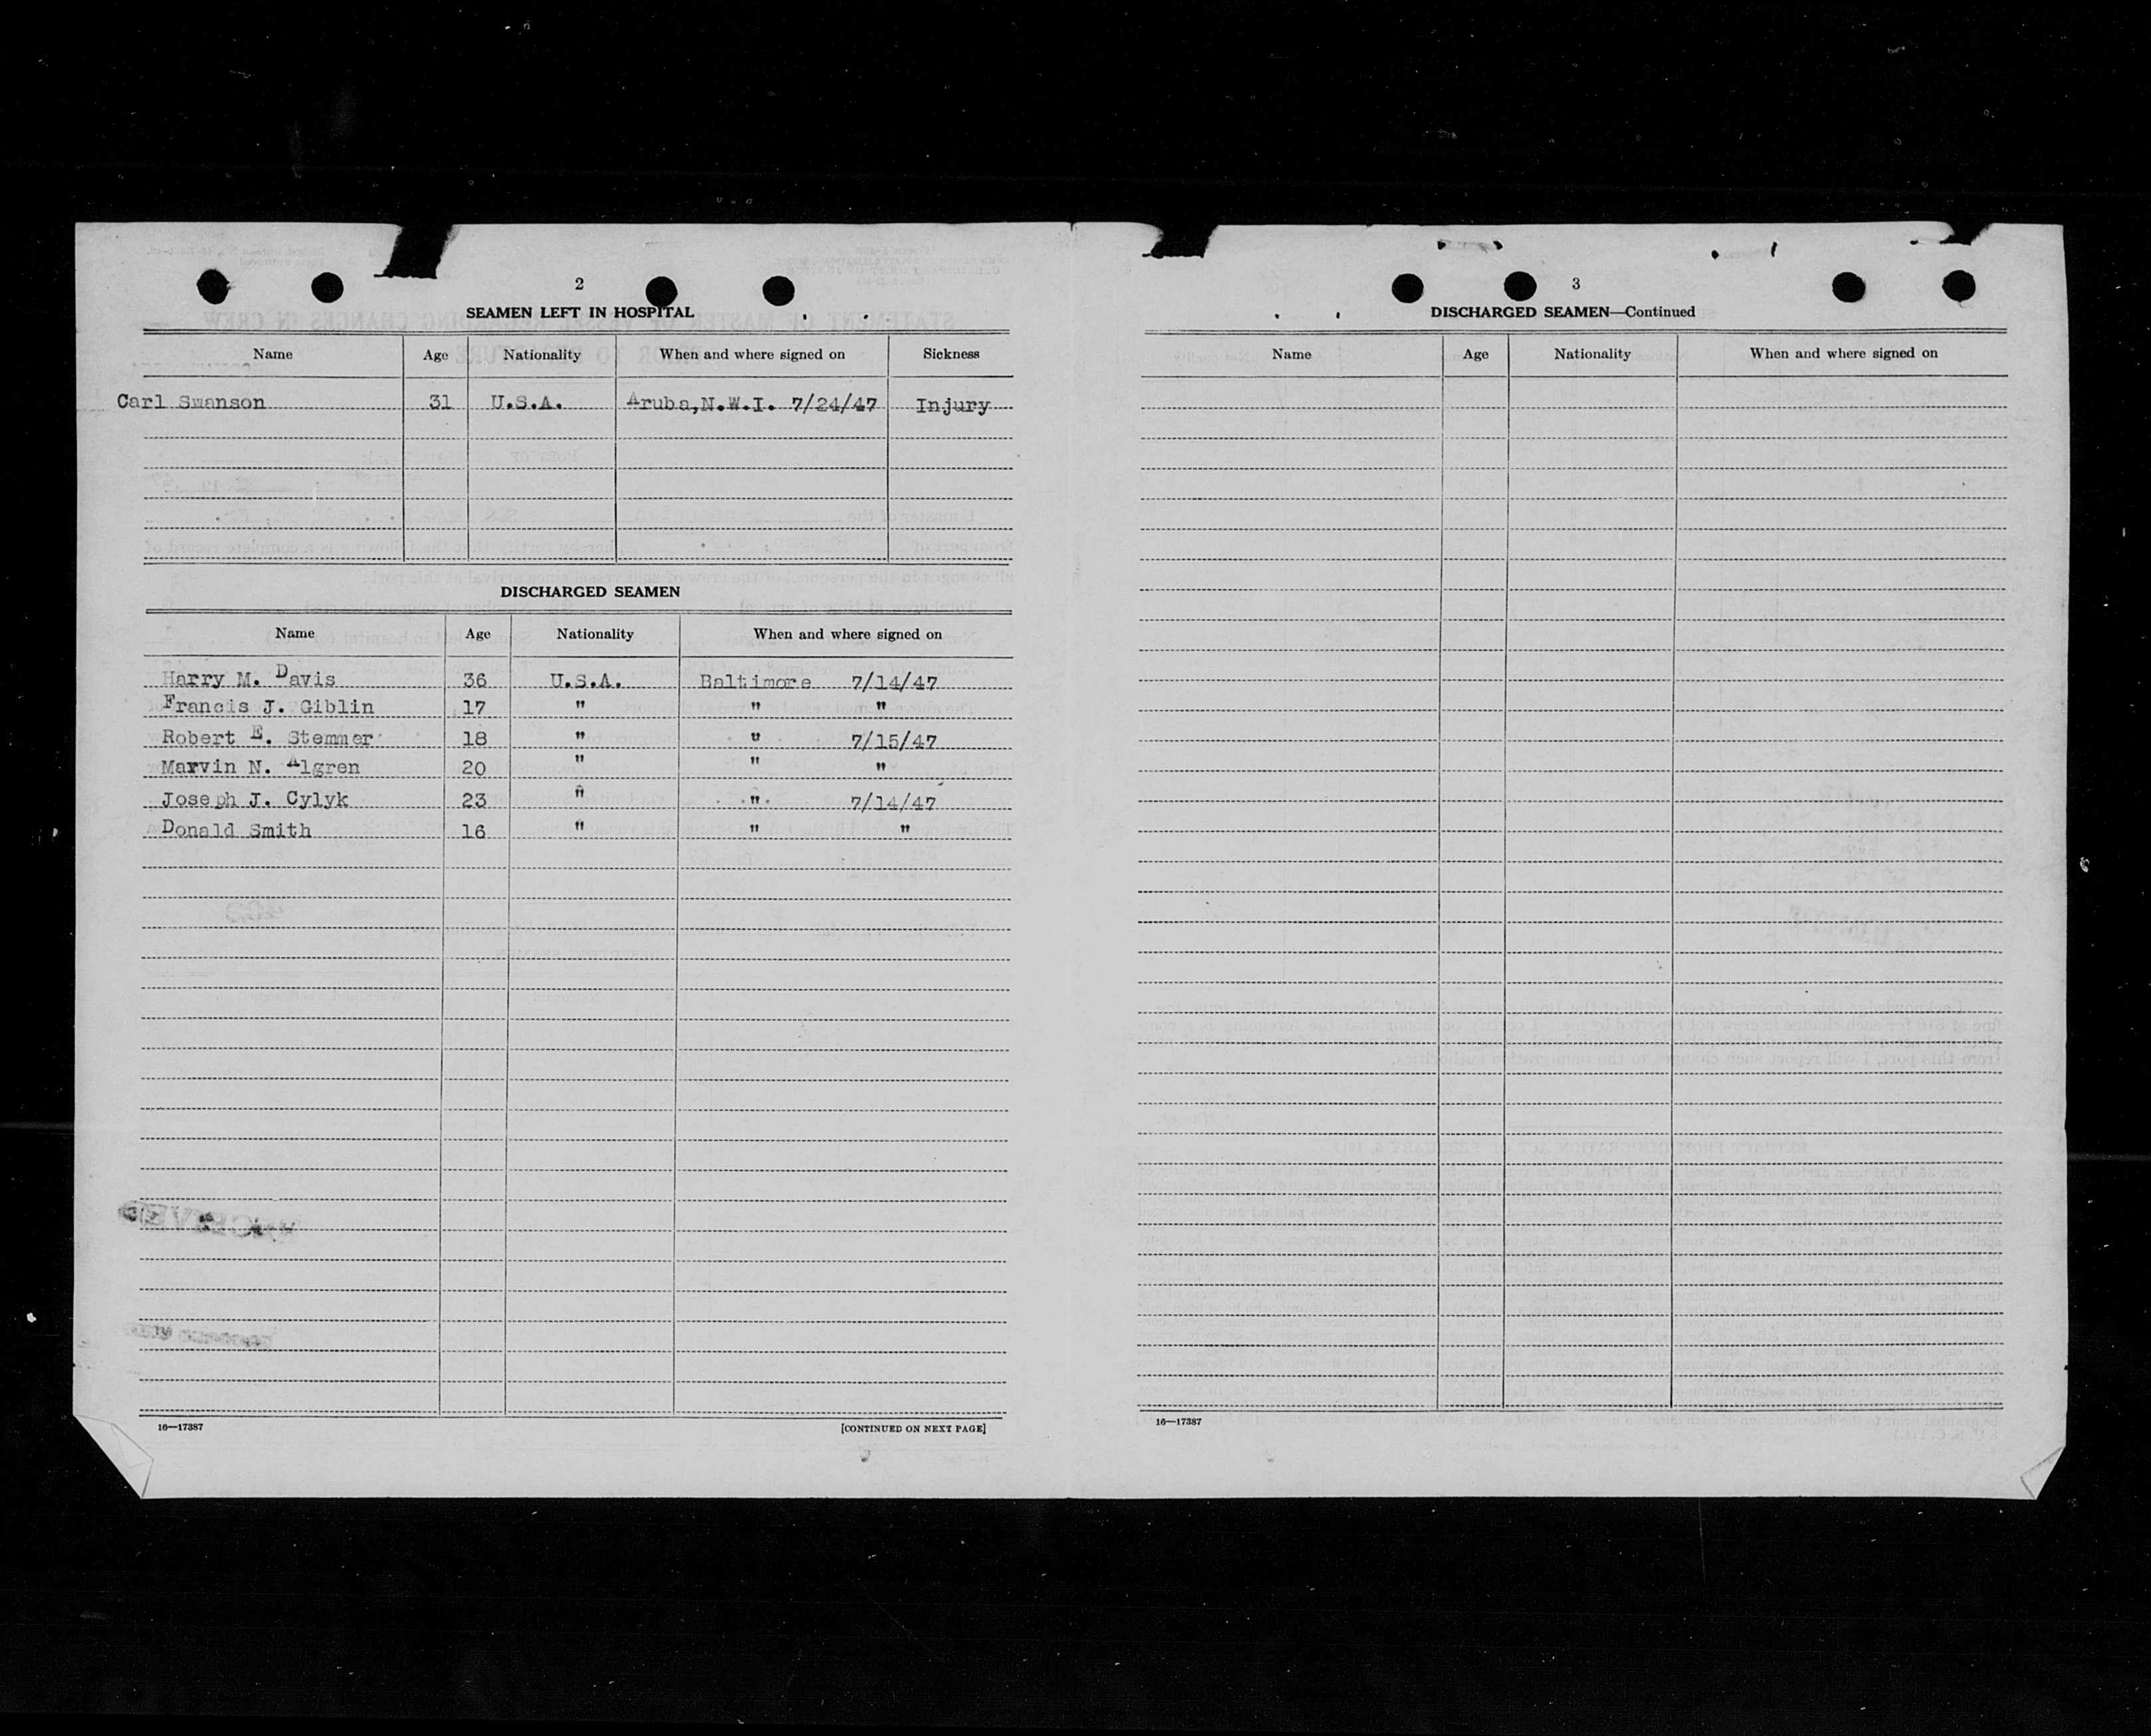 2
SEAMEN LEFT IN HOSPITAL
Name Age Nationality When and where signed on Sickness
Carl Swanson 31 U.S.A. Aruba,N.W.I. 7/24/47 Injury
DISCHARGED SEAMEN
Name Age Nationality When and where signed on
Harry M. Davis 36 U.S.A. Baltimore 7/14/47
Francis J. Giblin 17 " " "
Robert E. Stemmer 18 " " 7/15/47
Marvin N. Algren 20 " " "
Joseph J. Cylyk 23 " " 7/14/47
Donald Smith 16 " " "
16—17387 [CONTINUED ON NEXT PAGE]
3
DISCHARGED SEAMEN—Continued
Name Age Nationality When and where signed on
16—17387